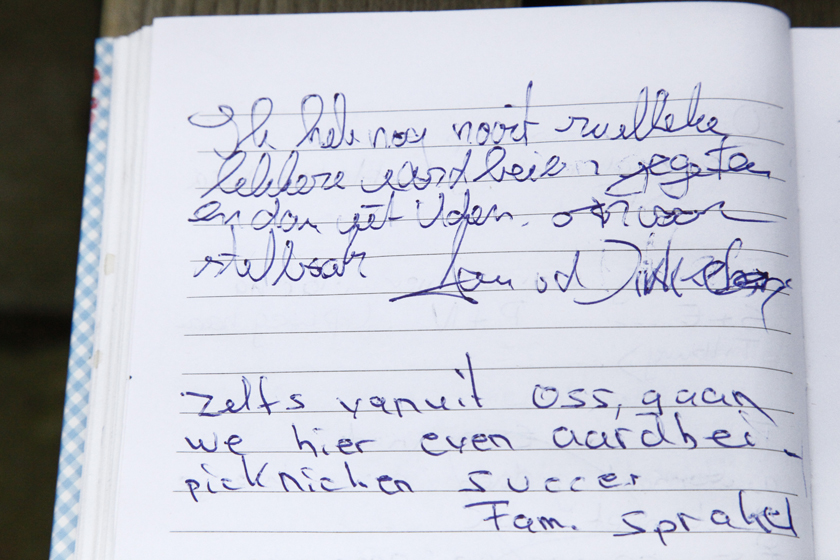 Ik heb nog nooit zulleke
lekkere aardbeien gegeten
en dan uit Uden. onvoor
stelbaar
zelfs vanuit oss, gaan
we hier even aardbei-
picknicken succer
Fam. sprakel